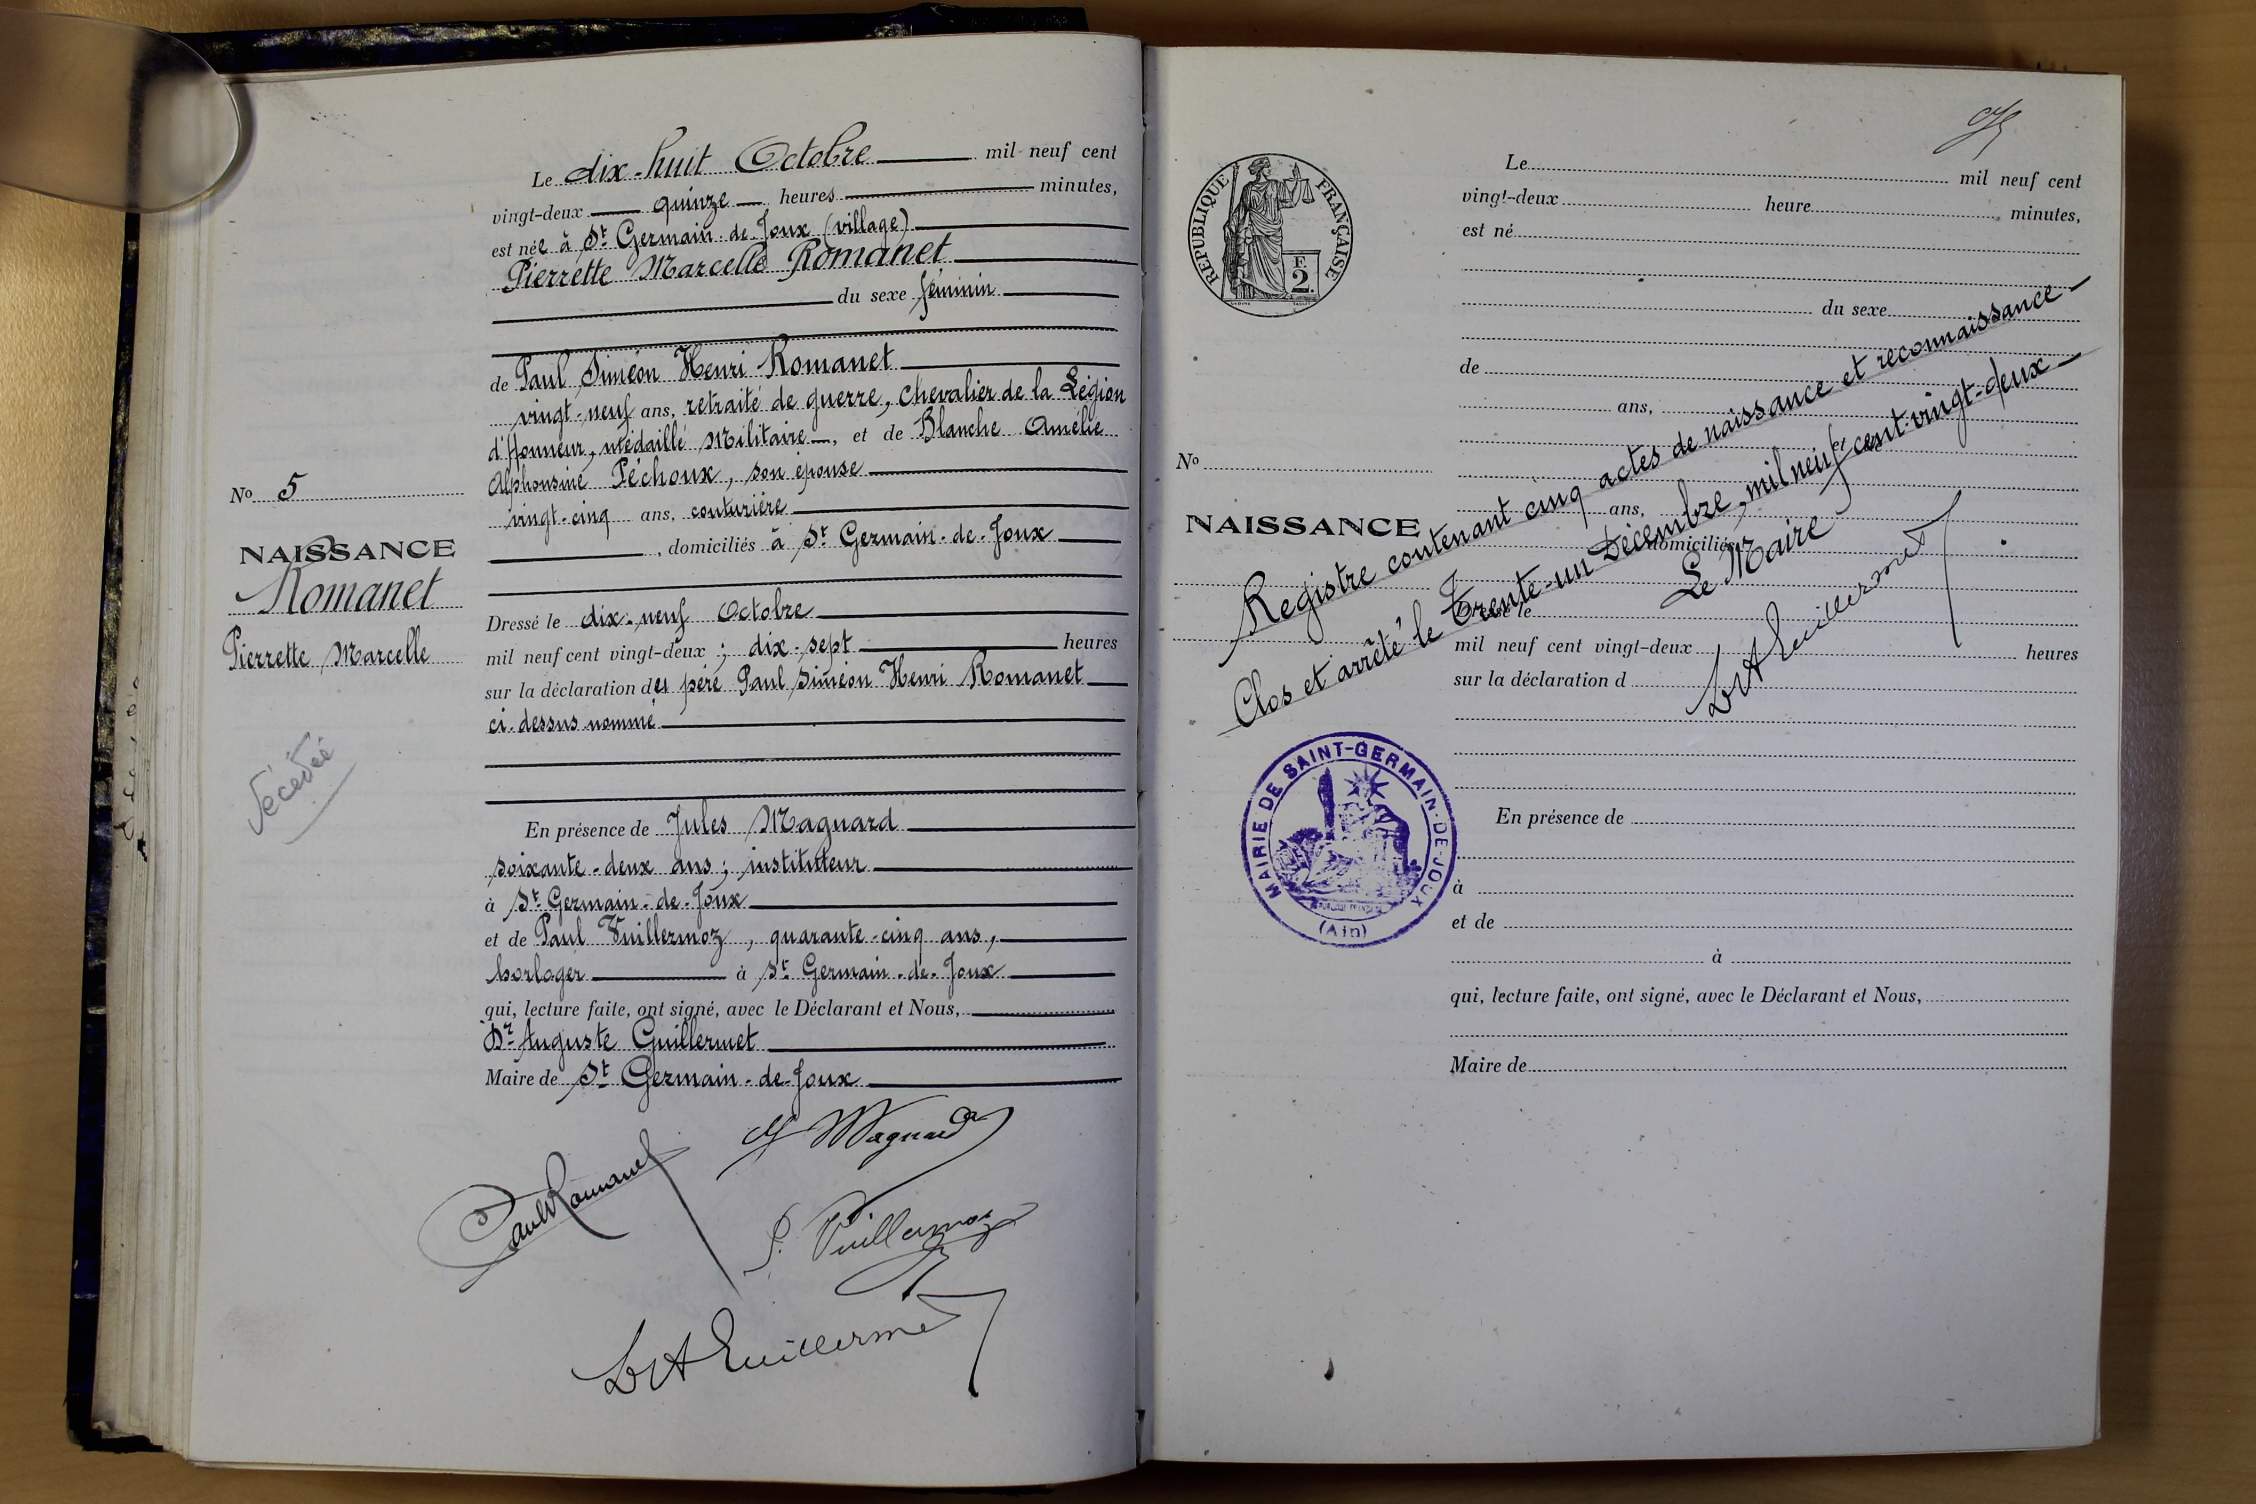 Le dix-huit Octobre mil neuf cent
vingt-deux quinze heures minutes,
est née à St Germain-de-Joux (village)
Pierrette Marcelle Romanet
du sexe féminin
de Paul Siméon Henri Romanet
vingt-neuf ans, retraité de guerre, Chevalier de la Légion
d'Honneur, médaillé Militaire, et de Blanche Amélie
Alphonsine Péchoux, son épouse
vingt-cinq ans, couturière
, domiciliés à St Germain-de-Joux
No 5
NAISSANCE
Romanet
Pierrette Marcelle
décédée
Dressé le dix-neuf Octobre
mil neuf cent vingt-deux ; dix-sept heures
sur la déclaration du père Paul Siméon Henri Romanet
ci-dessus nommé
En présence de Jules Magnard
soixante-deux ans ; instituteur
à St Germain-de-Joux
et de Paul Vuillermoz, quarante-cinq ans,
horloger à St Germain-de-Joux
qui, lecture faite, ont signé, avec le Déclarant et Nous,
Dr Auguste Guillermet
Maire de St Germain-de-Joux
J Magnard
Paul Romanet
P. Vuillermoz
Dr A Guillermet
RÉPUBLIQUE FRANÇAISE
F.
2.
Le mil neuf cent
vingt-deux heure minutes,
est né
du sexe
de
ans,
No
NAISSANCE
ans,
domiciliés
Registre contenant cinq actes de naissance et reconnaissance
Clos et arrêté le Trente-un Décembre, mil neuf cent vingt-deux
Le Maire
Dr A Guillermet
Dressé le
mil neuf cent vingt-deux heures
sur la déclaration d
MAIRIE DE SAINT-GERMAIN-DE-JOUX
(Ain)
En présence de
à
et de
à
qui, lecture faite, ont signé, avec le Déclarant et Nous,
Maire de